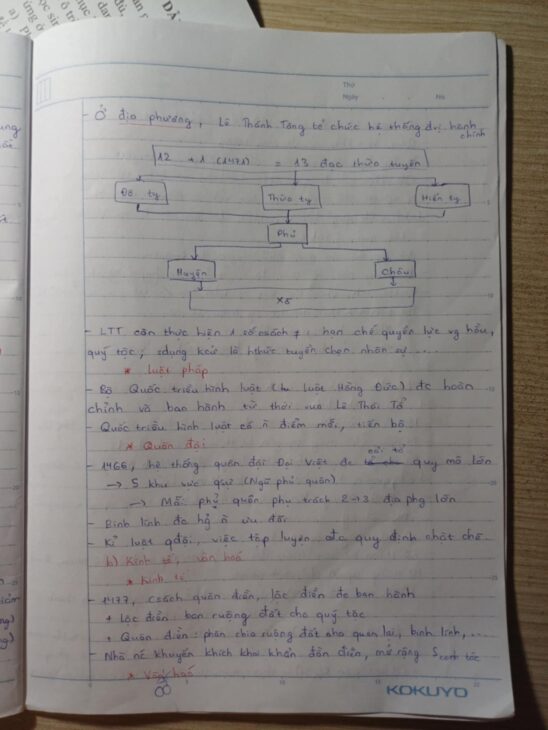 Thứ
Ngày . . No
- Ở địa phương, Lê Thánh Tông tổ chức hệ thống đvị hành chính
12 + 1 (1471) = 13 đạo thừa tuyên
Đô ty
Thừa ty
Hiến ty
Phủ
Huyện
Châu
Xã
- LTT còn thực hiện 1 số csách ≠: hạn chế quyền lực vg hầu,
quý tộc; sdụng kcử là hthức tuyển chọn nhân sự ....
* Luật pháp
- Bộ Quốc triều hình luật (luật Hồng Đức) đc hoàn
chỉnh và ban hành từ thời vua Lê Thái Tổ
- Quốc triều hình luật có n điểm mới, tiến bộ
* Quân đội
- 1466, hệ thống quân đội Đại Việt đc cải tổ quy mô lớn
→ 5 khu vực quự (Ngũ phủ quân)
→ Mỗi phủ quân phụ trách 2→3 địa phg lớn
- Binh lính đc hg n ưu đãi
- Kỉ luật qđội, việc tập luyện đc quy định chặt chẽ
b) Kinh tế, văn hoá
* Kinh tế
- 1477, csách quân điền, lộc điền đc ban hành
+ Lộc điền ban ruộng đất cho quý tộc
+ Quân điền: phân chia ruộng đất cho quan lại, binh lính,...
- Nhà nc khuyến khích khai khẩn đồn điền, mở rộng S canh tác
* Văn hoá
KOKUYO